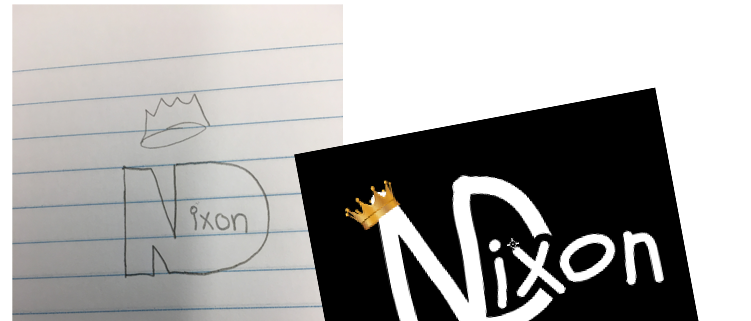 NDixon
NDixon